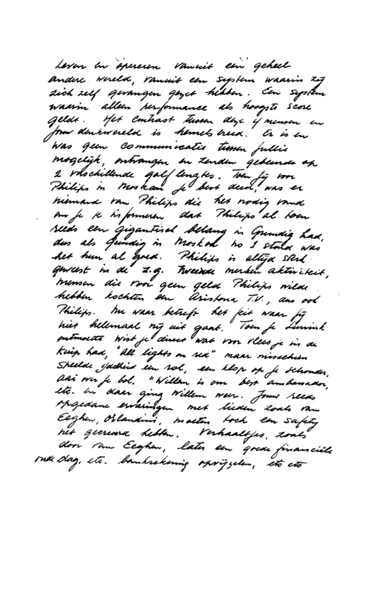 Leven en opereren vanuit een geheel
andere wereld, vanuit een system waarin zij
zich zelf gevangen gezet hebben. Een system
waarin alleen performance als hoogste score
geldt. Het contrast tussen deze mensen en
jouw denkwereld is hemels breed. Er is en
was geen communicatie tussen jullie
mogelijk, ontvangen en zenden gebeurde op
2 verschillende golf lengtes. Toen jij voor
Philips in Moskou je best deed, was er
niemand van Philips die het nodig vond
om je te informeren dat Philips al toen
reeds een gigantisch belang in Grundig had,
dus als Grundig in Moskou no 1 stand was
het hun al goed. Philips is altijd sterk
geweest in de z.g. Tweede merken aktiviteit,
mensen die voor geen geld Philips wilde
hebben kochten een Aristona T.V., dus ook
Philips. Nu waar betreft het feit waar jij
niet helemaal vrij uit gaat. Toen je
ontmoette wist je direct wat voor vlees je in de
Kuip had, "All lights on red" maar misschien
speelde ijdelheid een rol, een klop op je schouder,
aai over je bol. "Willem is our best ambassador,
etc. en daar ging Willem weer. Jouw reeds
opgedane ervaringen met lieden zoals van
Eeghen, Orlandini, moeten toch een safety
net gecreeerd hebben. Verhaaltjes, zoals
door van Eeghen, later een goede financiële
oude dag, etc. bankrekening opvijzelen, etc etc